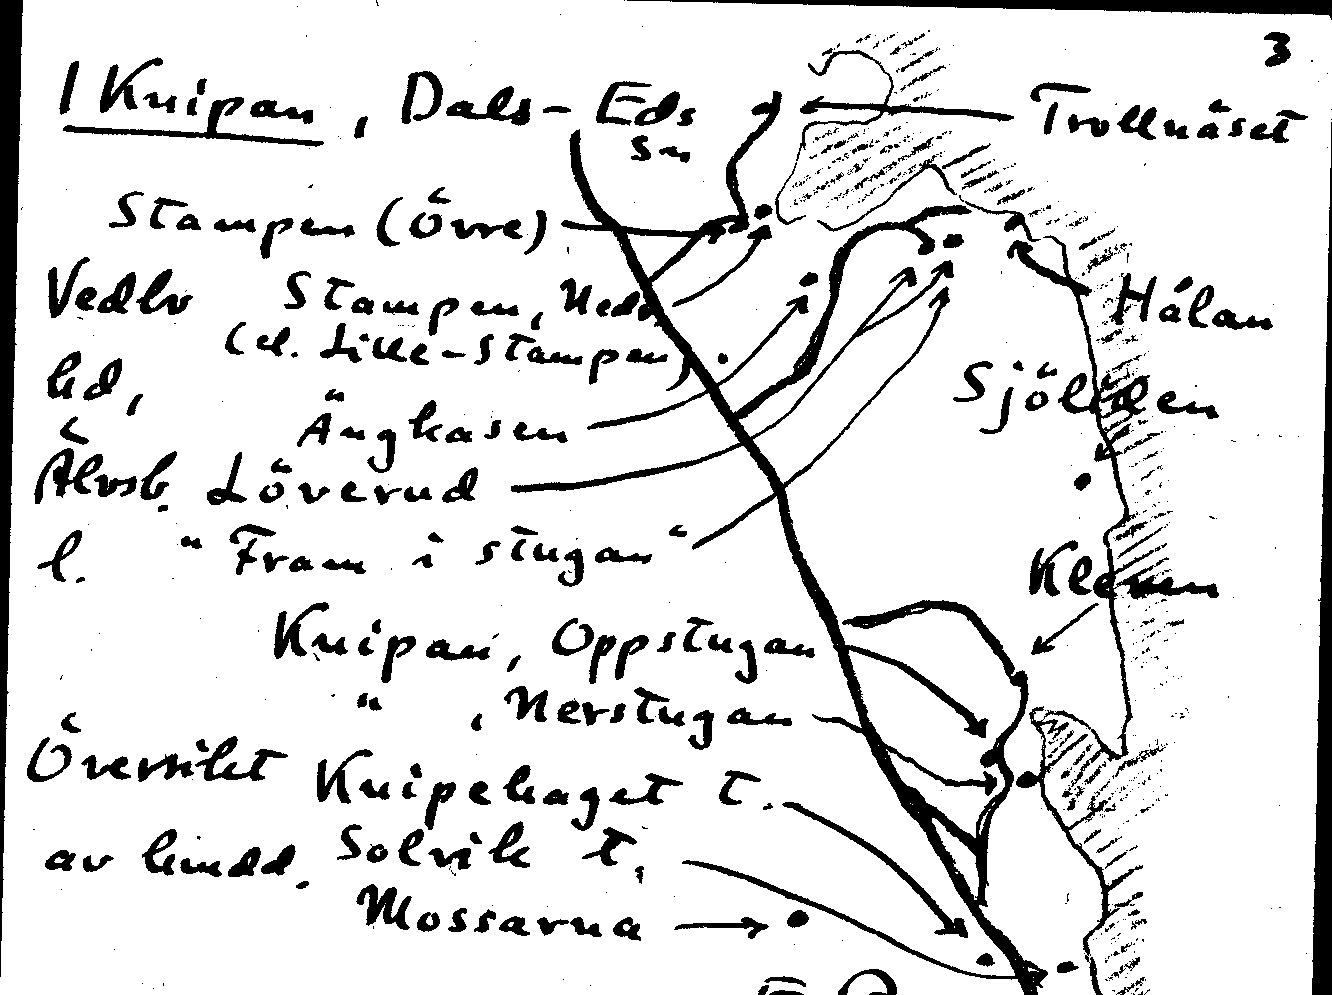 3
1 Knipan, Dals-Eds sn
Trollnäset
Stampen (Övre)
Vedbo Stampen, Nedr
(el. Lille-Stampen)
hd,
Hålan
Ängkasen
Sjöliden
Älvsb. Löverud
l. "Fram i stugan"
Kleven
Knipan, Oppstugan
" , Nerstugan
Översikt Knipehaget t.
av bindd. Solvik t.
Mossarna